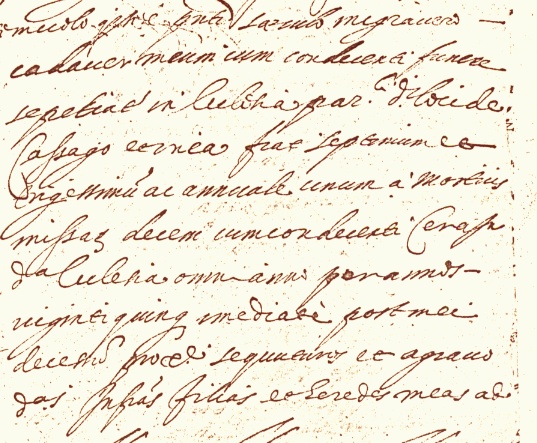 migravero
cadaver meum cum condecenti funere
sepeliat in Eccl̃ia par.li d. loci de
Cassago et in ea fiat septimum et
trigessimũ ac annuale unum à Mortuis
missaȝ decem cum condecenti Cera in
d.a Eccl̃ia omni anno per annos
viginti quinq mediate post mei
decess sequuturos et agravo
das Infras filias et heredes meas ad